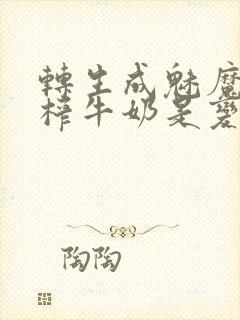 轉生成魅魔
榨牛奶是變
陶陶